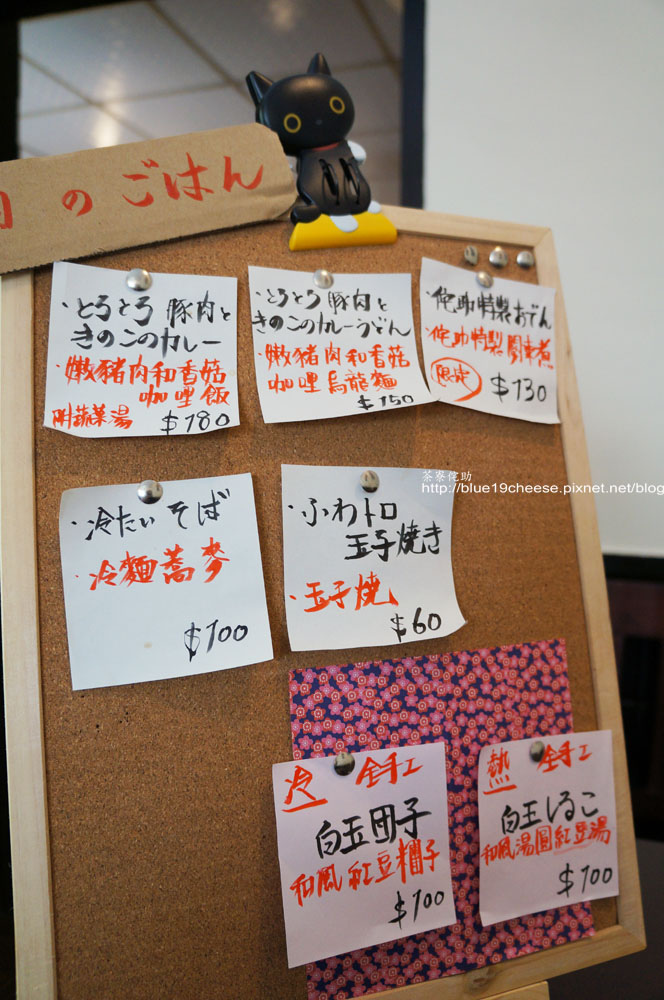 のごはん
・とろとろ 豚肉と
きのこのカレー
・嫩豬肉和香菇
咖哩飯
附蔬菜湯 $180
・とろとろ 豚肉と
きのこのカレーうどん
・嫩豬肉和香菇
咖哩烏龍麵
$150
・侘助特製おでん
・侘助特製関東煮
限定 $130
・冷たいそば
・冷麵蕎麥
$100
・ふわトロ
玉子焼き
・玉子燒
$60
茶寮侘助
http://blue19cheese.pixnet.net/blog
冷 全手工
白玉団子
和風紅豆糰子
$100
熱 全手工
白玉しるこ
和風湯圓紅豆湯
$100